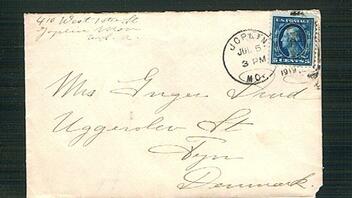 416 West 10th St
Joplin Mo
U.S.A.
JOPLIN
JUL 5
3 PM
MO.
1919
U.S. POSTAGE
5 CENTS 5
Mrs Inger
Uggerslev St
Fyn
Denmark.